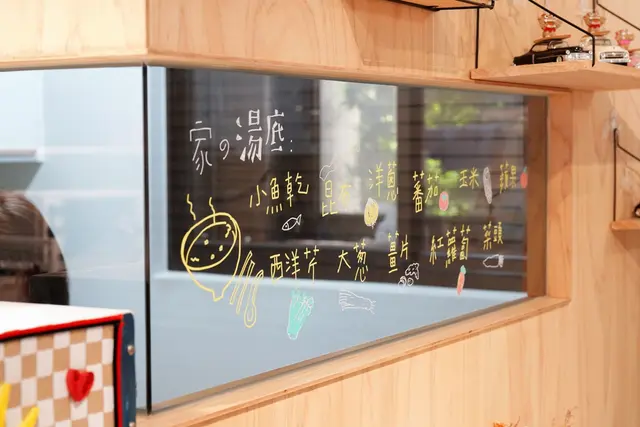 家の湯底:
小魚乾 昆布 洋蔥 蕃茄 玉米 蘋果
西洋芹 大蔥 薑片 紅蘿蔔 菜頭